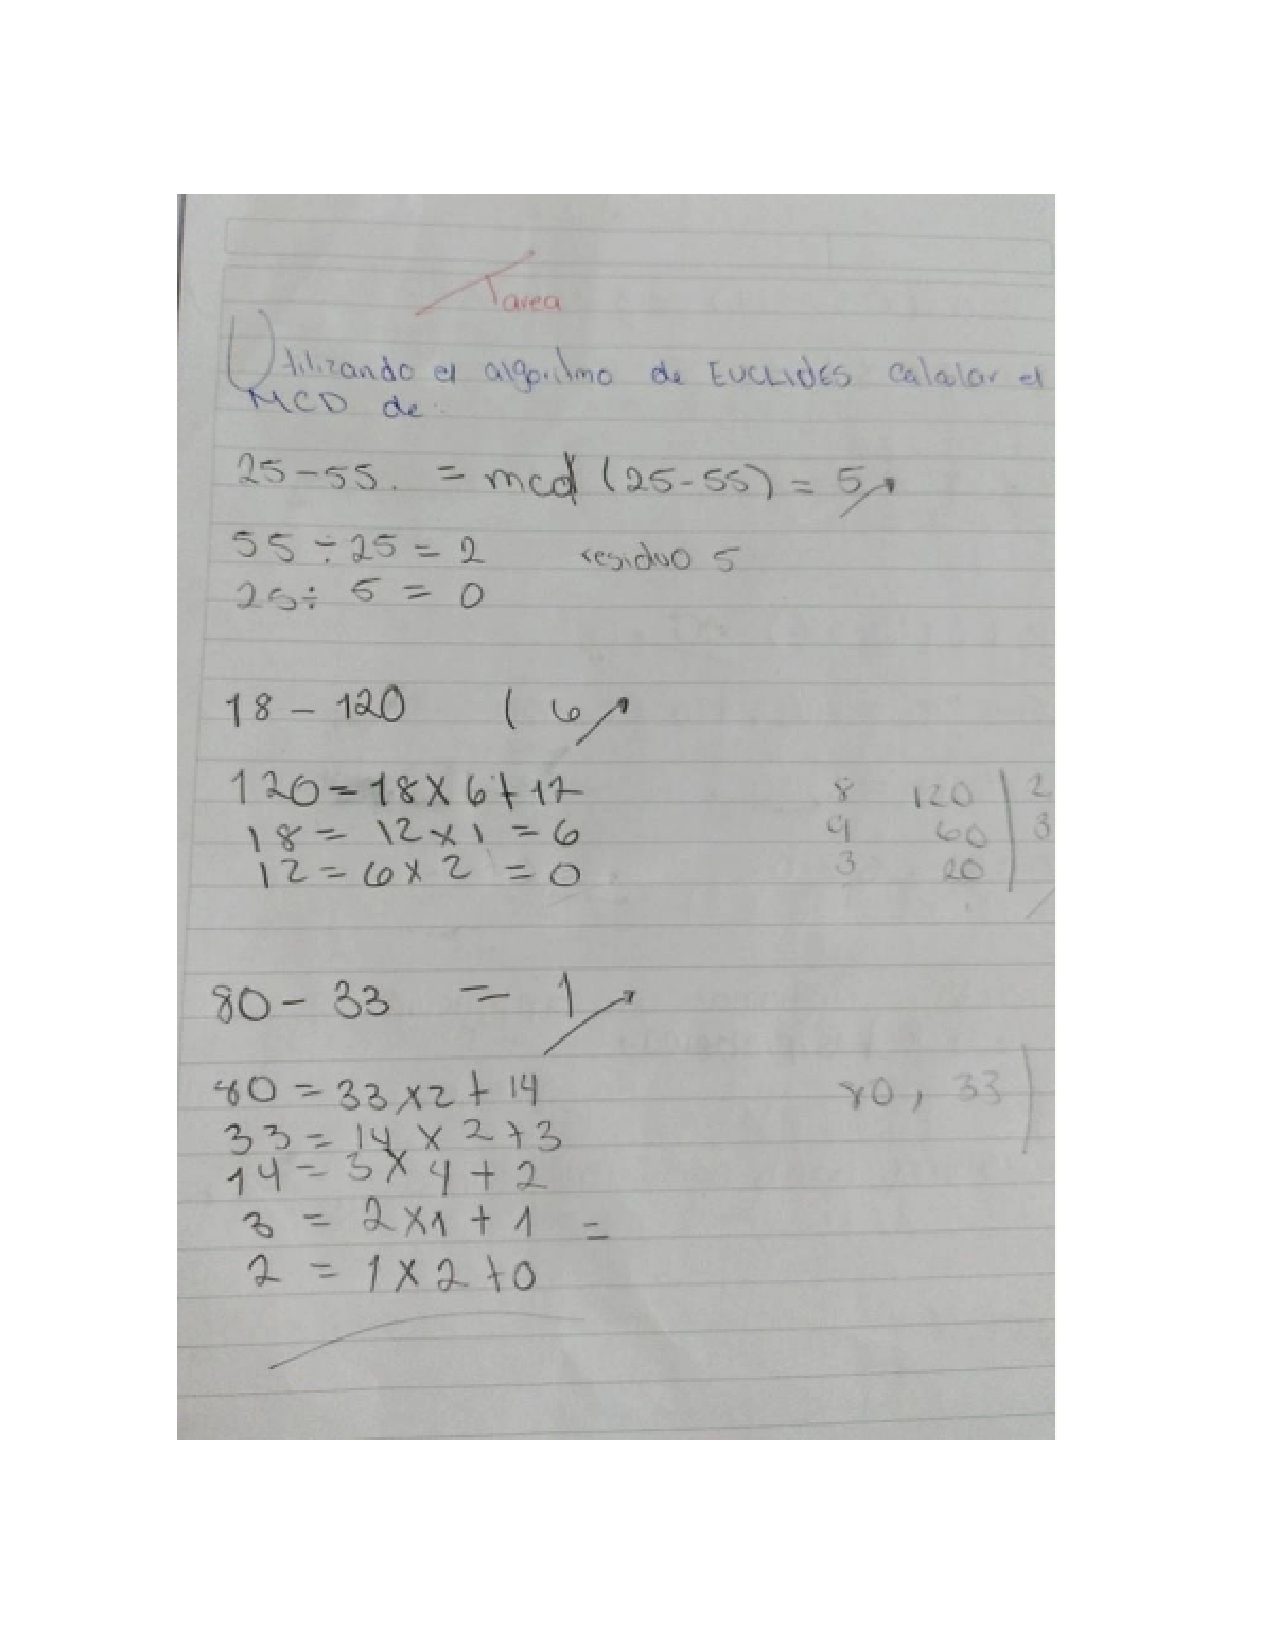 Tarea
Utilizando el algoritmo de EUCLIDES calcular el
MCD de:
25-55. = mcd (25-55) = 5
55 ÷ 25 = 2 residuo 5
25 ÷ 5 = 0
18 - 120 ( 6
120 = 18 x 6 + 12 8 120 2
18 = 12 x 1 = 6 9 60 3
12 = 6 x 2 = 0 3 20
80 - 33 = 1
80 = 33 x 2 + 14 80, 33
33 = 14 x 2 + 3
14 = 3 x 4 + 2
3 = 2 x 1 + 1 =
2 = 1 x 2 + 0